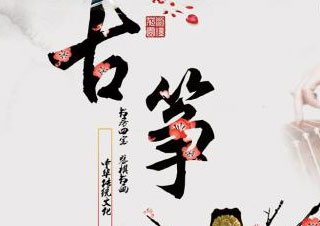 古筝
书房四宝 琴棋书画
中华传统文化